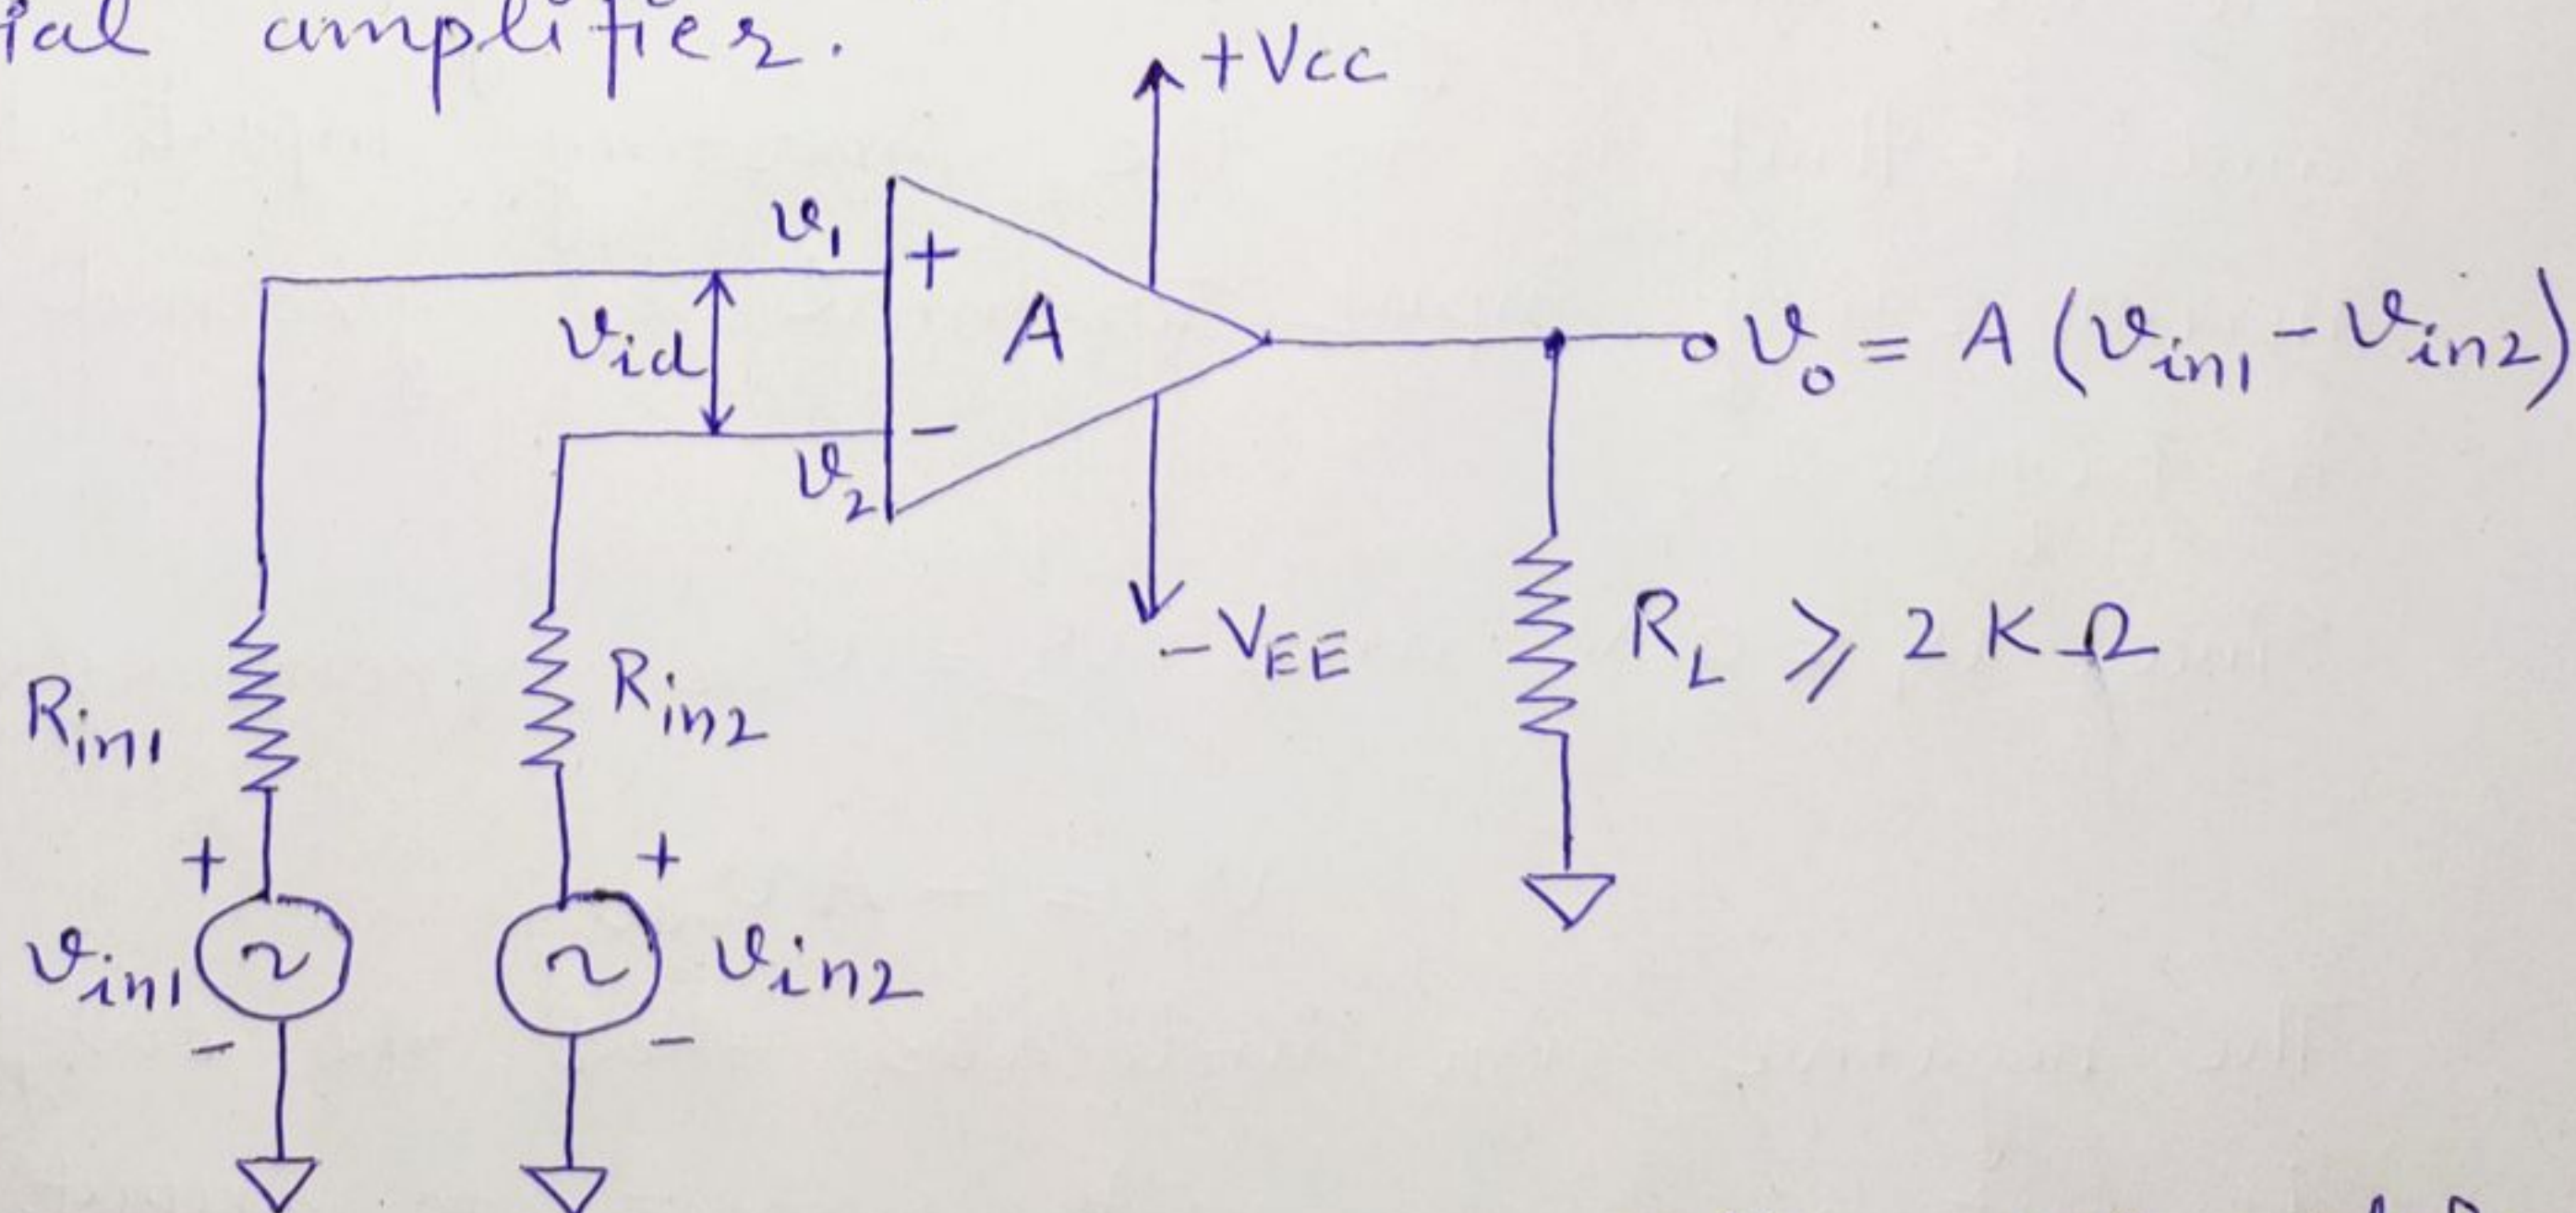 ial amplifier.
+Vcc
v1
+
A
vid
-
v2
vo = A (vin1 - vin2)
-VEE
RL ⩾ 2 K Ω
Rin1
Rin2
+
+
vin1
~
~
vin2
-
-